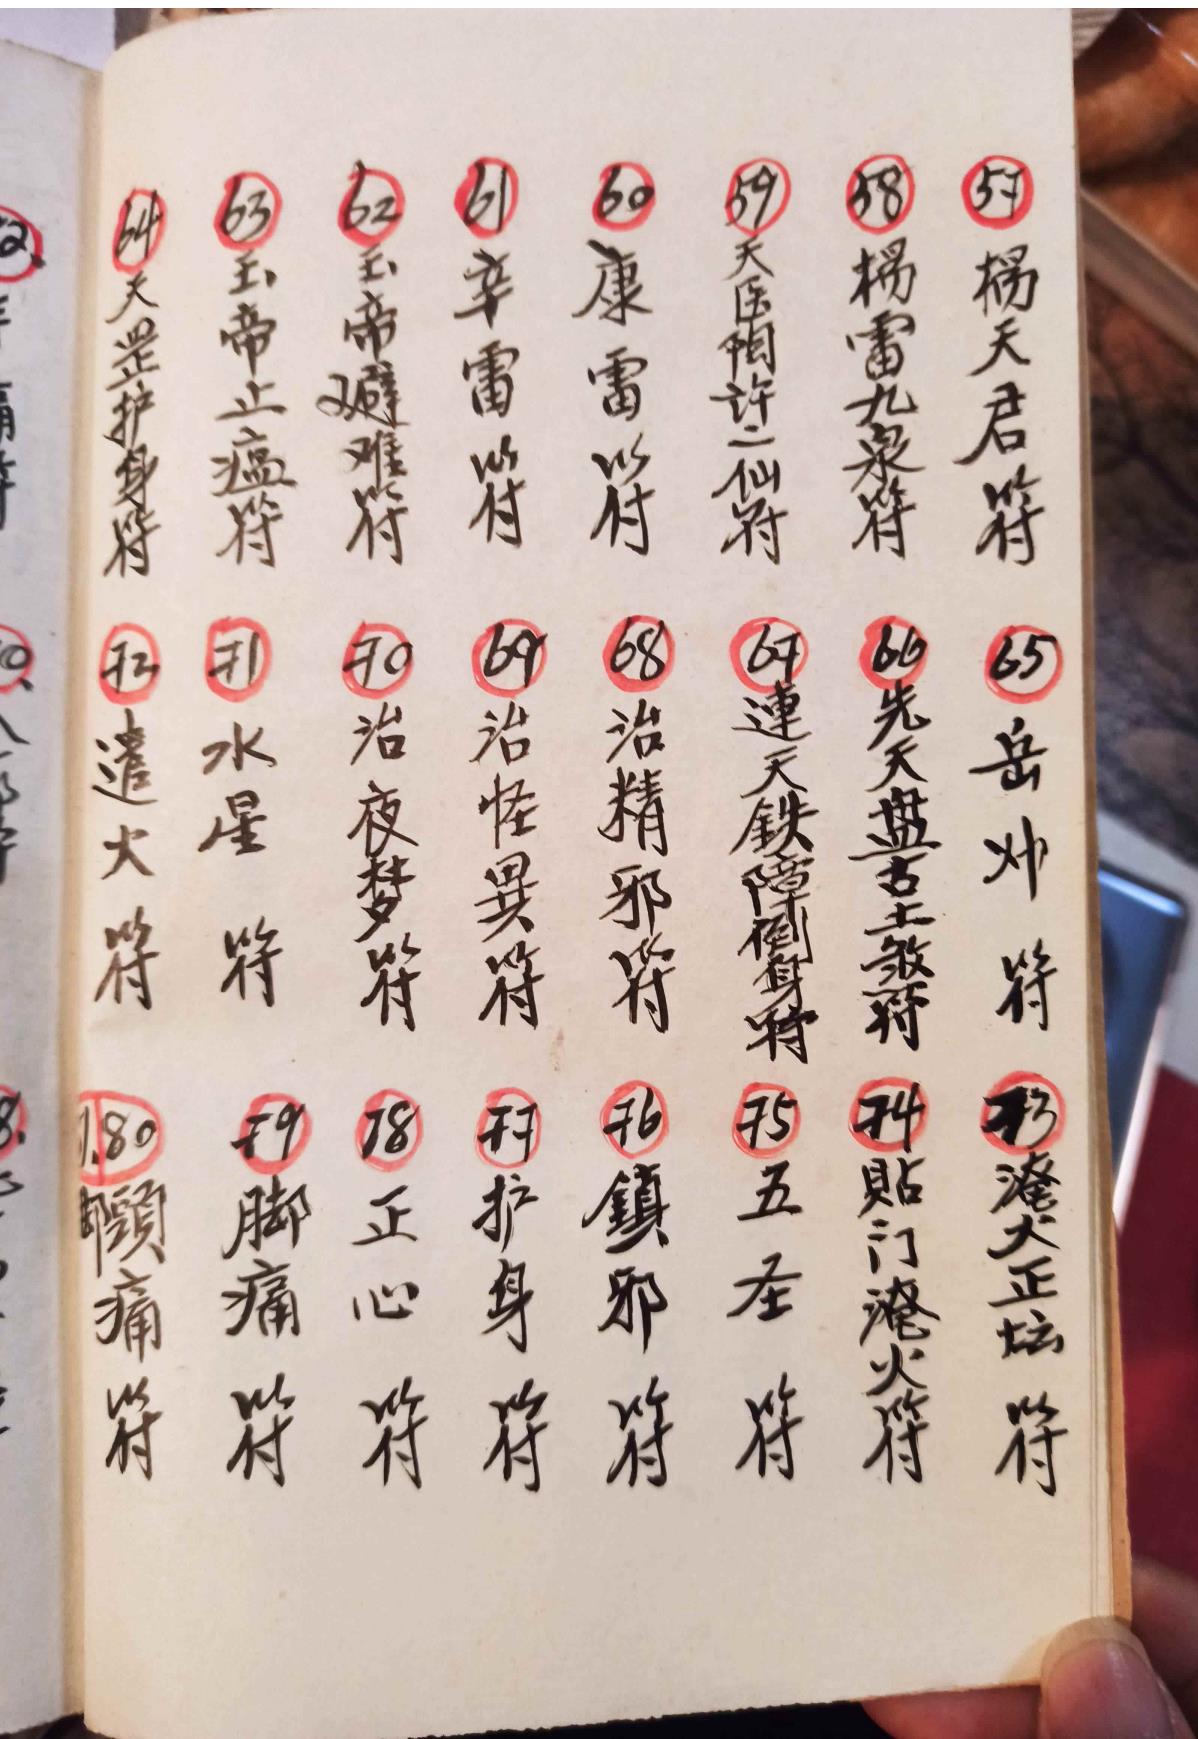 57 楊天君符
58 楊雷九泉符
59 天医陶許二仙符
60 康雷符
61 辛雷符
62 玉帝避难符
63 玉帝止瘟符
64 天罡护身符
65 岳帅符
66 先天盘古土煞符
67 連天鉄障倒身符
68 治精邪符
69 治怪異符
70 治夜梦符
71 水星符
72 遣火符
73 滝火正坛符
74 貼门滝火符
75 五圣符
76 鎮邪符
77 护身符
78 正心符
79 脚痛符
80 頭痛符